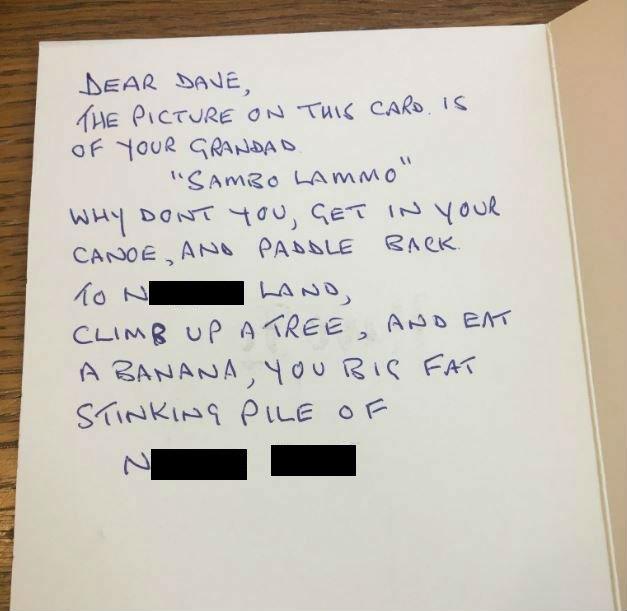 DEAR DAVE,
THE PICTURE ON THIS CARD. IS
OF YOUR GRANDAD
"SAMBO LAMMO"
WHY DONT YOU, GET IN YOUR
CANOE, AND PADDLE BACK.
TO N LAND,
CLIMB UP A TREE, AND EAT
A BANANA, YOU BIG FAT
STINKING PILE OF
N